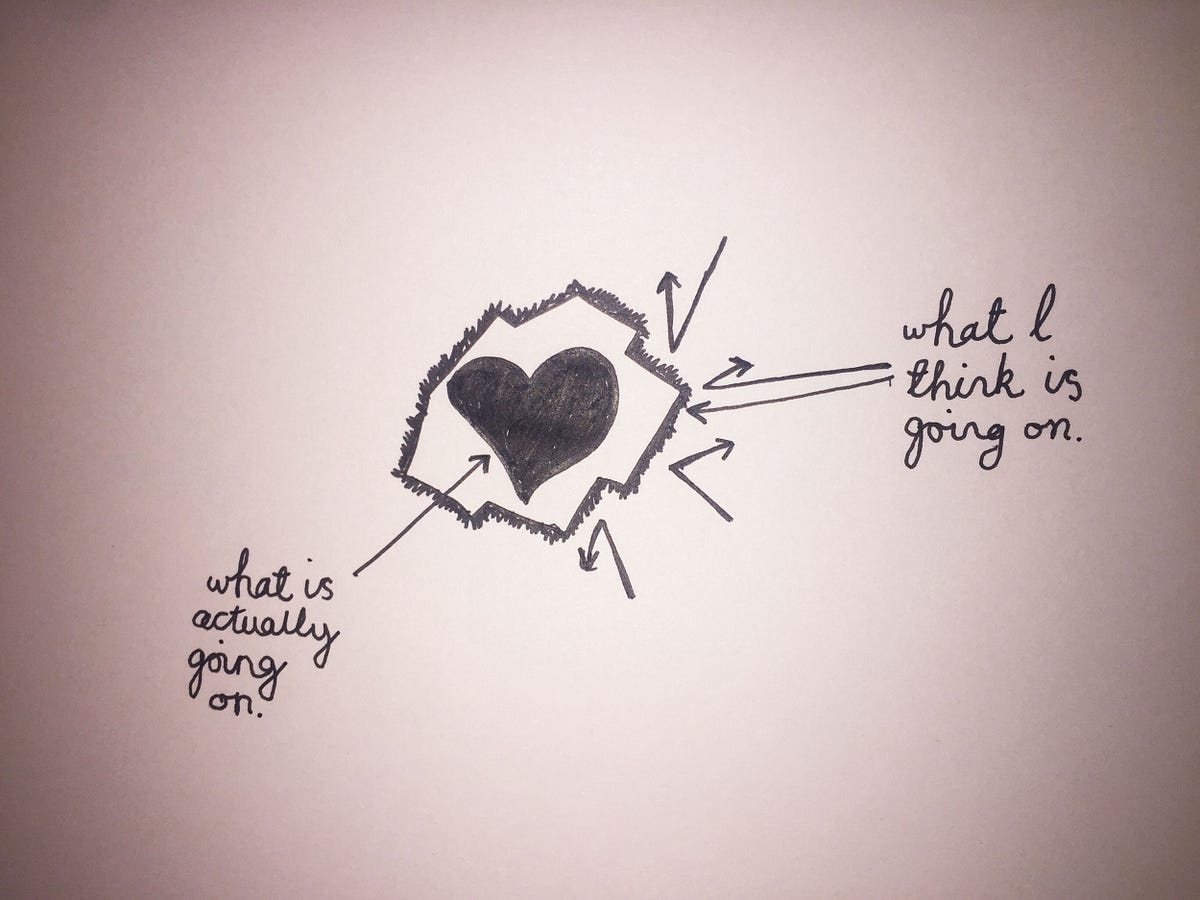 what I
think is
going on.
what is
actually
going
on.